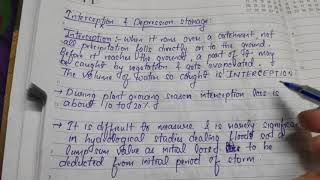 Interception & Depression storage:
Interception :- when it rains over a catchment, not
all precipitation falls directly on to the ground.
Before it reaches the ground, a part of it may
be caught by vegetation & gets evaporated.
The volume of water so caught is INTERCEPTION
→ During plant growing season interception loss is
about 10 to 20%
→ It is difficult to measure & is namely significant
in hydrological studies dealing floods so a
lumpsum value as initial loses to be
deducted from initial period of storm